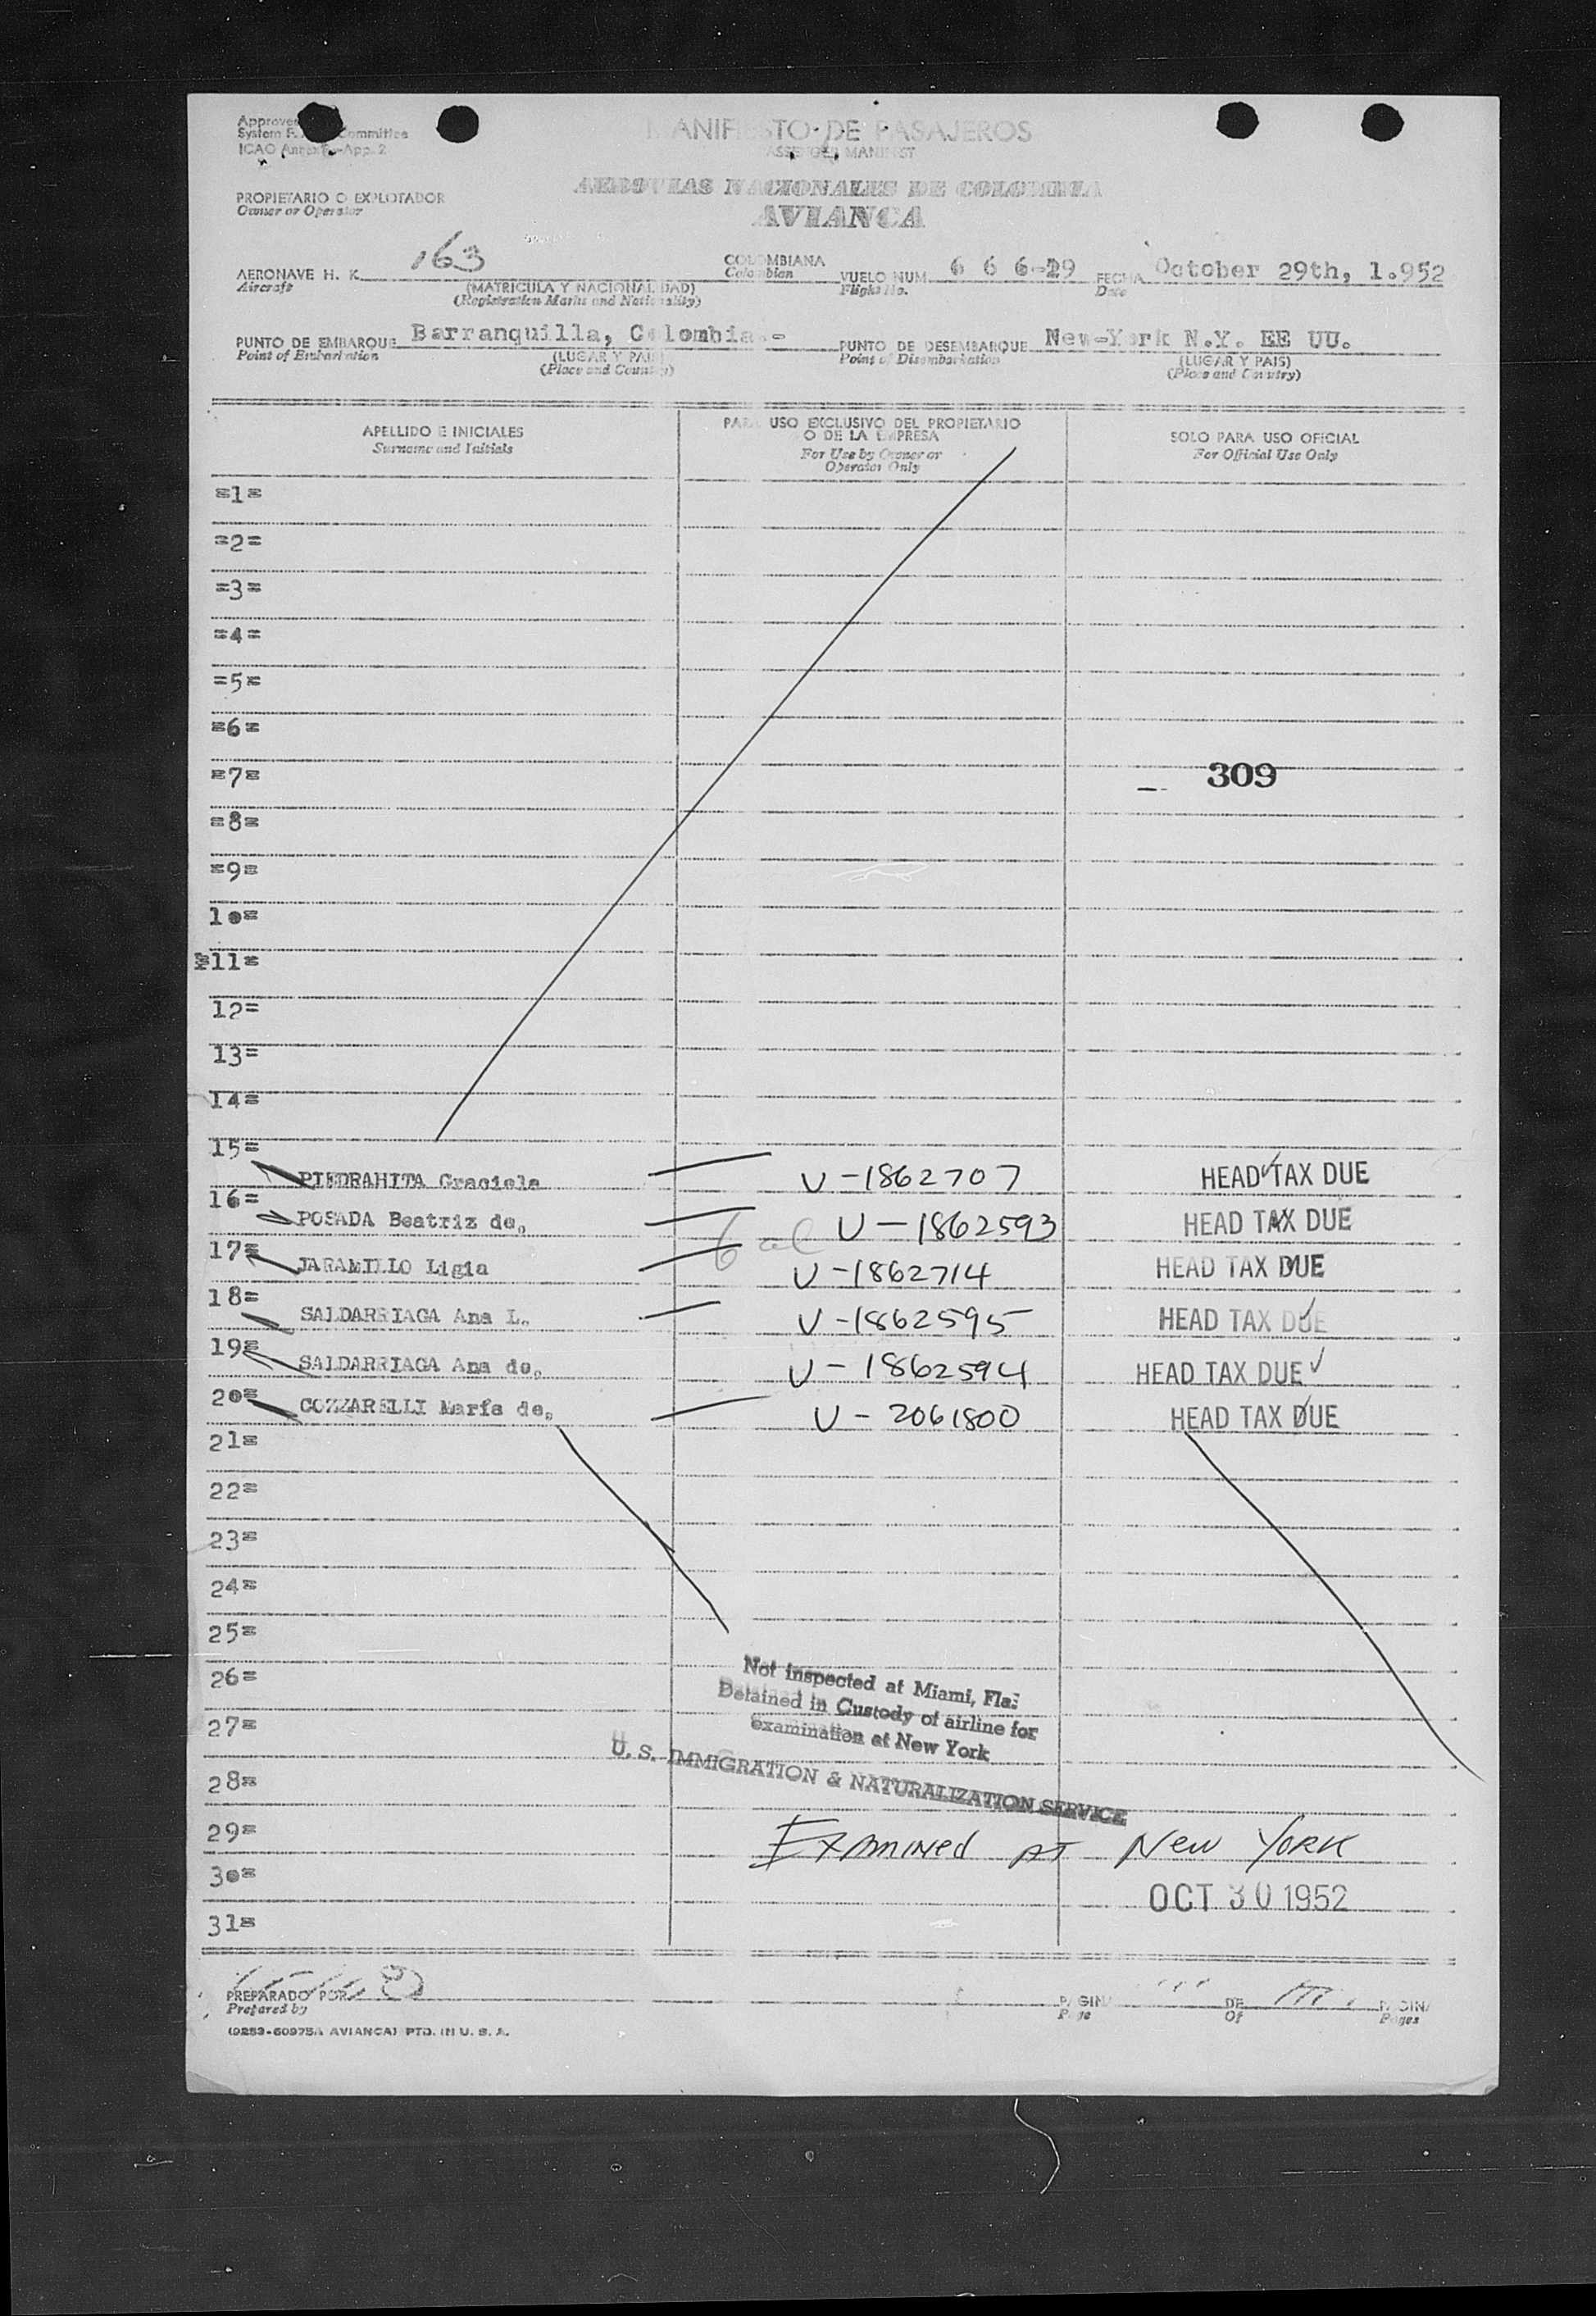 Approve
System F. Committee
ICAO Annex -App. 2
MANIFIESTO DE PASAJEROS
PASSENGER MANIFEST
AEROVIAS NACIONALES DE COLOMBIA
AVIANCA
PROPIETARIO O EXPLOTADOR
Owner or Operator
AERONAVE H. K. 163 COLOMBIANA VUELO NUM. 6 6 6-29 FECHA October 29th, 1.952
Aircraft (MATRICULA Y NACIONALIDAD) Colombian Flight No. Date
(Registration Marks and Nationality)
PUNTO DE EMBARQUE Barranquilla, Colombia.- PUNTO DE DESEMBARQUE New-York N.Y. EE UU.
Point of Embarkation (LUGAR Y PAIS) Point of Disembarkation (LUGAR Y PAIS)
(Place and Country) (Place and Country)
APELLIDO E INICIALES PARA USO EXCLUSIVO DEL PROPIETARIO SOLO PARA USO OFICIAL
Surname and Initials O DE LA EMPRESA For Official Use Only
For Use by Owner or
Operator Only
=1=
=2=
=3=
=4=
=5=
=6=
=7= 309
=8=
=9=
10=
11=
12=
13=
14=
15=
PIEDRAHITA Graciela U-1862707 HEAD TAX DUE
16=
POSADA Beatriz de, U-1862593 HEAD TAX DUE
17=
JARAMILLO Ligia U-1862714 HEAD TAX DUE
18=
SALDARRIAGA Ana L. U-1862595 HEAD TAX DUE
19=
SALDARRIAGA Ana de, U-1862594 HEAD TAX DUE
20=
COZZARELLI María de, U-2061800 HEAD TAX DUE
21=
22=
23=
24=
25=
26=
27=
28=
29=
30=
31=
Not inspected at Miami, Fla.
Detained in Custody of airline for
examination at New York
U. S. IMMIGRATION & NATURALIZATION SERVICE
Examined at New York
OCT 30 1952
PREPARADO POR PAGINA DE PAGINA
Prepared by Page Of Pages
(9253-60975A AVIANCA) PTD. IN U. S. A.